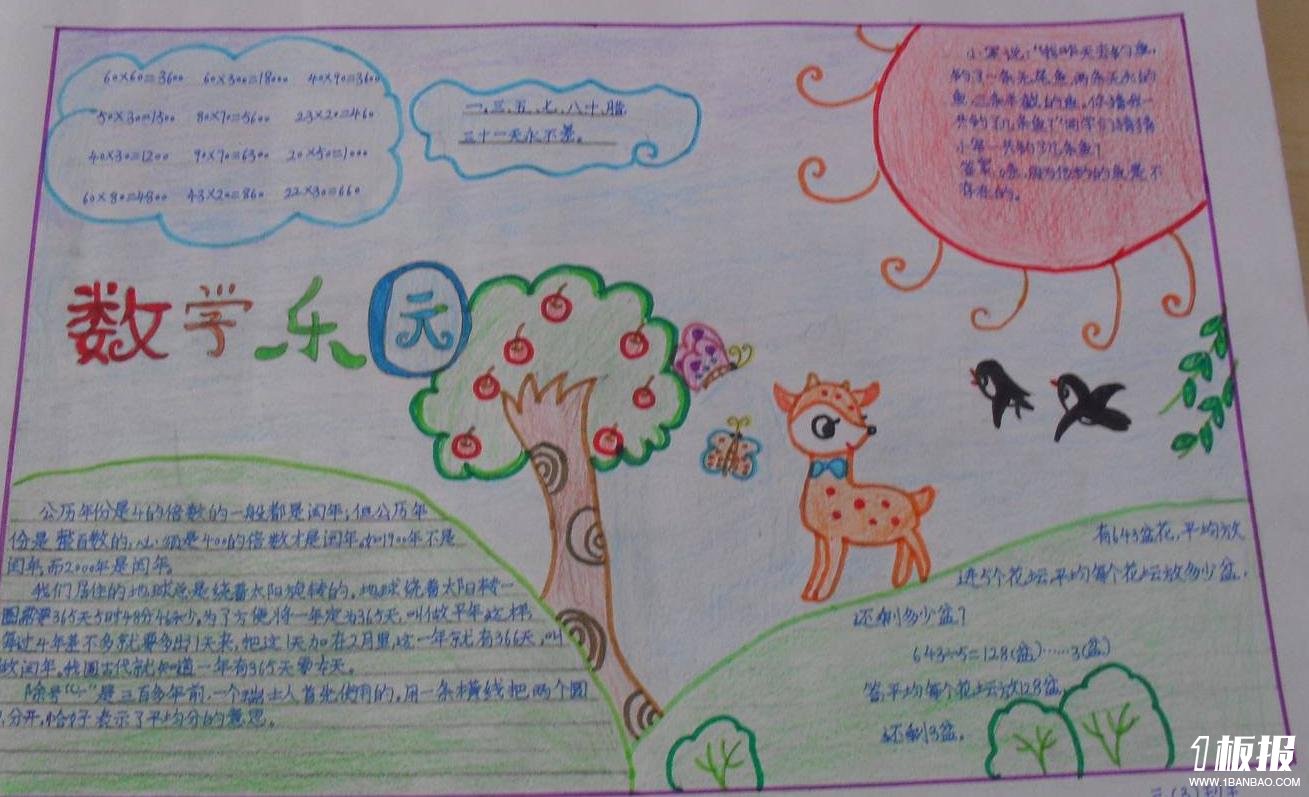 60×60=3600 60×300=18000 40×90=3600
50×30=1500 80×70=5600 23×20=460
40×30=1200 90×70=6300 20×50=1000
60×80=4800 43×20=860 22×30=660
一、三、五、七、八、十、腊,
三十一天永不差。
小军说:“我昨天去钓鱼,
钓了一条无尾鱼,两条无头的
鱼,三条半截的鱼。你猜我一
共钓了几条鱼?”同学们猜猜
小军一共钓了几条鱼?
答案:0条,因为他钓的鱼是不
存在的。
数学乐园
公历年份是4的倍数的一般都是闰年;但公历年
份是整百数的,必须是400的倍数才是闰年。如1900年不是
闰年,而2000年是闰年。
我们居住的地球总是绕着太阳旋转的,地球绕着太阳转一
圈需要365天5时48分46秒,为了方便,将一年定为365天,叫做平年。这样,
每过4年差不多就要多出1天来,把这1天加在2月里,这一年就有366天,叫
做闰年。我国古代就知道一年有365天
除号“÷”是三百多年前,一个瑞士人首先使用的,用一条横线把两个圆
分开,恰好表示了平均分的意思。
有643盆花,平均放
进5个花坛,平均每个花坛放多少盆,
还剩多少盆?
643÷5=128(盆)……3(盆)
答:平均每个花坛放128盆,
还剩3盆。
1板报
WWW.1BANBAO.COM